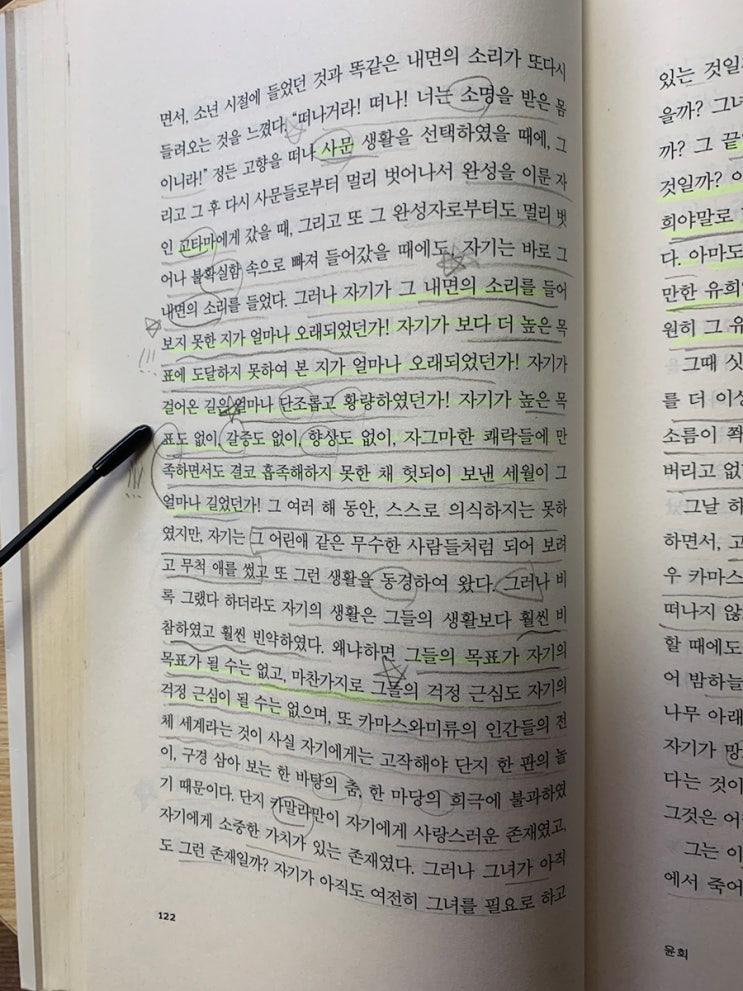 면서, 소년 시절에 들었던 것과 똑같은 내면의 소리가 또다시
들려오는 것을 느꼈다. “떠나거라! 떠나! 너는 소명을 받은 몸
이니라!” 정든 고향을 떠나 사문 생활을 선택하였을 때에, 그
리고 그 후 다시 사문들로부터 멀리 벗어나서 완성을 이룬 자
인 고타마에게 갔을 때, 그리고 또 그 완성자로부터도 멀리 벗
어나 불확실함 속으로 빠져 들어갔을 때에도, 자기는 바로 그
내면의 소리를 들었다. 그러나 자기가 그 내면의 소리를 들어
보지 못한 지가 얼마나 오래되었던가! 자기가 보다 더 높은 목
표에 도달하지 못하여 본 지가 얼마나 오래되었던가! 자기가
걸어온 길은 얼마나 단조롭고 황량하였던가! 자기가 높은 목
표도 없이, 갈증도 없이, 향상도 없이, 자그마한 쾌락들에 만
족하면서도 결코 흡족해하지 못한 채 헛되이 보낸 세월이 그
얼마나 길었던가! 그 여러 해 동안, 스스로 의식하지는 못하
였지만, 자기는 그 어린애 같은 무수한 사람들처럼 되어 보려
고 무척 애를 썼고 또 그런 생활을 동경하여 왔다. 그러나 비
록 그랬다 하더라도 자기의 생활은 그들의 생활보다 훨씬 비
참하였고 훨씬 빈약하였다. 왜냐하면 그들의 목표가 자기의
목표가 될 수는 없고, 마찬가지로 그들의 걱정 근심도 자기의
걱정 근심이 될 수는 없으며, 또 카마스와미류의 인간들의 전
체 세계라는 것이 사실 자기에게는 고작해야 단지 한 판의 놀
이, 구경 삼아 보는 한 바탕의 춤, 한 마당의 희극에 불과하였
기 때문이다. 단지 카말라만이 자기에게 사랑스러운 존재였고,
자기에게 소중한 가치가 있는 존재였다. 그러나 그녀가 아직
도 그런 존재일까? 자기가 아직도 여전히 그녀를 필요로 하고
122
있는 것일
을까? 그녀
까? 그 끝
것일까?
희야말로
다. 아마도
만한 유희
원히 그 유
그때 싯
를 더 이상
소름이 쫙
버리고 없
그날 하
하면서, 고
우 카마스
떠나지 않
할 때에도
어 밤하늘
나무 아래
자기가 망
다는 것이
그것은 어
그는 이
에서 죽어
윤회